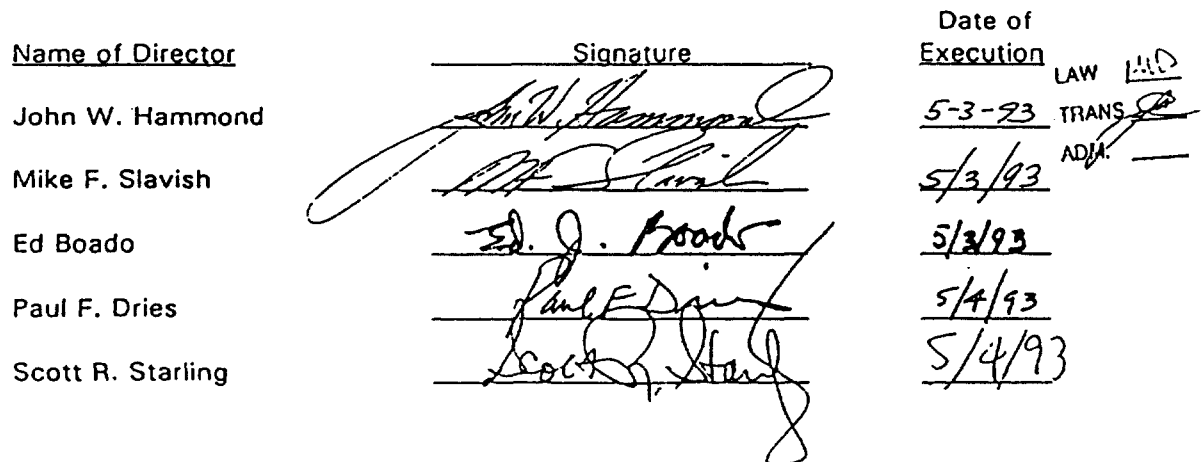 Date of
Name of Director Signature Execution
LAW
John W. Hammond John W. Hammond 5-3-93 TRANS
ADM.
Mike F. Slavish MF Slavish 5/3/93
Ed Boado Ed. J. Boado 5/3/93
Paul F. Dries Paul F Dries 5/4/93
Scott R. Starling Scott R. Starling 5/4/93